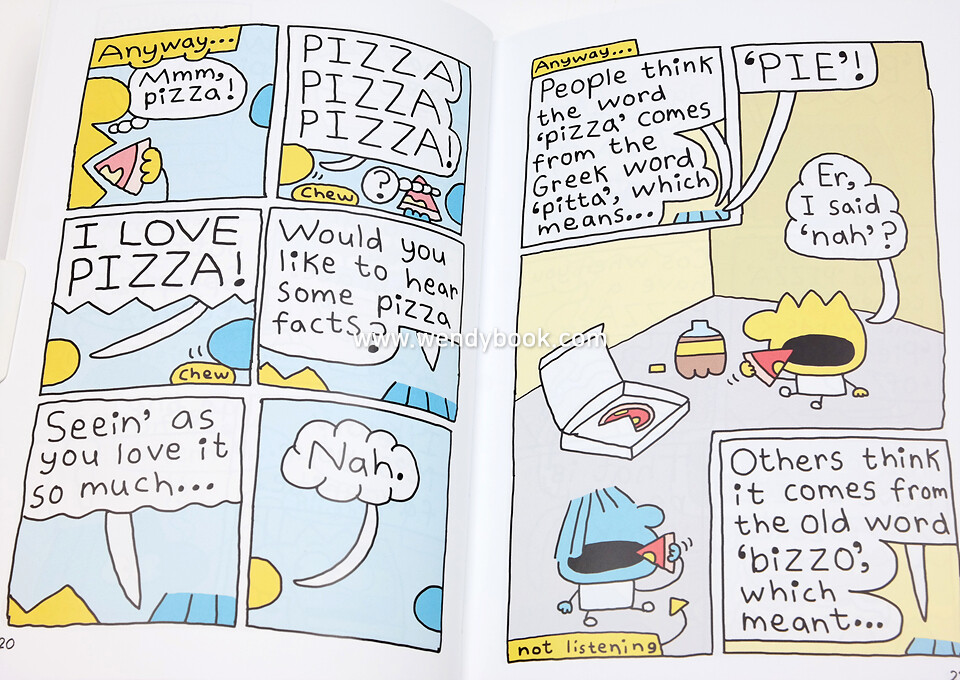 Anyway...
Mmm,
pizza!
PIZZA
PIZZA
PIZZA!
Chew
?
I LOVE
PIZZA!
Chew
Would you
like to hear
some pizza
facts?
Seein' as
you love it
so much...
Nah.
20
Anyway...
People think
the word
'pizza' comes
from the
Greek word
'pitta', which
means...
'PIE'!
Er,
I said
'nah'?
not listening
Others think
it comes from
the old word
'bizzo',
which
meant...
www.wendybook.com